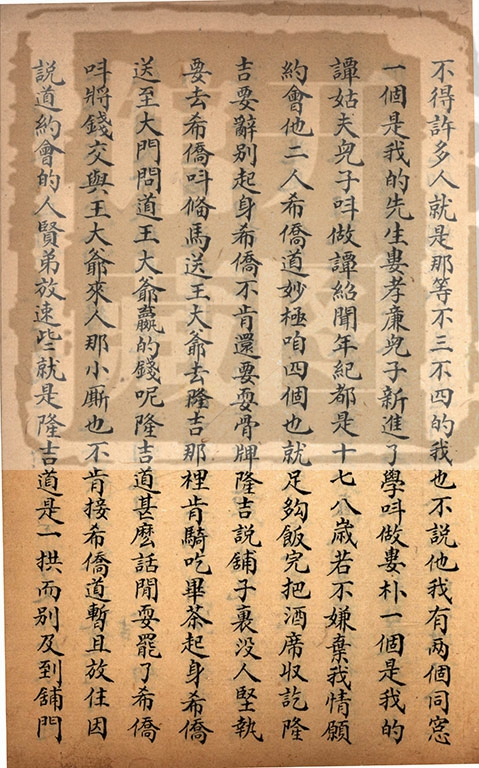 不得許多人就是那等不三不四的我也不說他我有两個同窓
一個是我的先生婁孝廉兒子新進了學呌做婁朴一個是我的
譚姑夫兒子呌做譚紹聞年紀都是十七八歲若不嫌棄我情願
約會他二人希僑道妙極咱四個也就足夠飯完把酒席収訖隆
吉要辭別起身希僑不肯還要耍骨牌隆吉說舖子裏没人堅執
要去希僑呌俻馬送王大爺去隆吉那裡肯騎吃畢茶起身希僑
送至大門問道王大爺贏的錢呢隆吉道甚麽話閒耍罷了希僑
呌將錢交與王大爺來人那小厮也不肯接希僑道暫且放住因
説道約會的人賢弟放速些就是隆吉道是一拱而别及到舖門